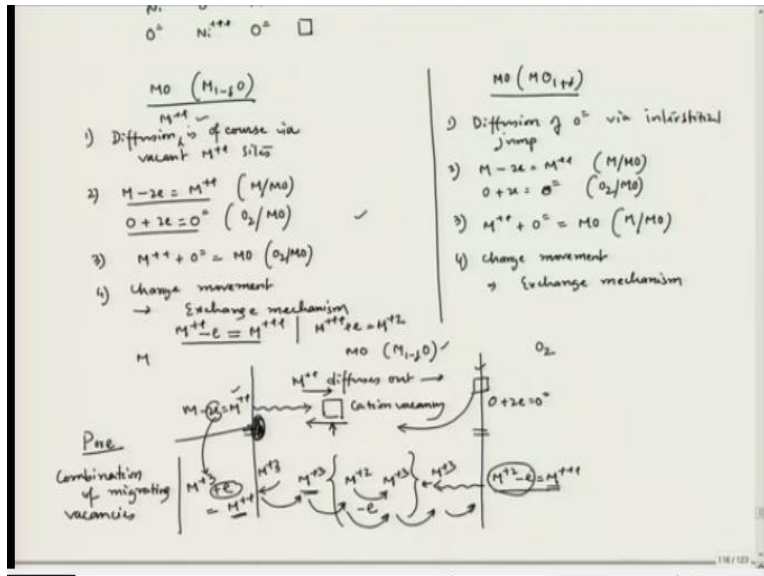 O= Ni+++ O= □
MO (M1-δO)
M++
1) Diffusion is of course via
vacant M++ sites
2) M-2e = M++ (M/MO)
O+2e = O= (O2/MO)
3) M++ + O= = MO (O2/MO)
4) Charge movement
→ Exchange mechanism
M++-e = M+++ | M+++ +e = M+2
MO (MO1+δ)
1) Diffusion of O= via interstitial
jump
2) M-2e = M++ (M/MO)
O+2e = O= (O2/MO)
3) M++ + O= = MO (M/MO)
4) Charge movement
→ Exchange mechanism
M MO (M1-δO) O2
M++ diffuses out →
M-2e=M++ □ Cation vacancy O+2e=O=
Pore
Combination
of migrating
vacancies
M+3 +e
= M++
M+3 M+3 { M+2 M+3 } M+3
-e
M+2 -e = M+++
116/123